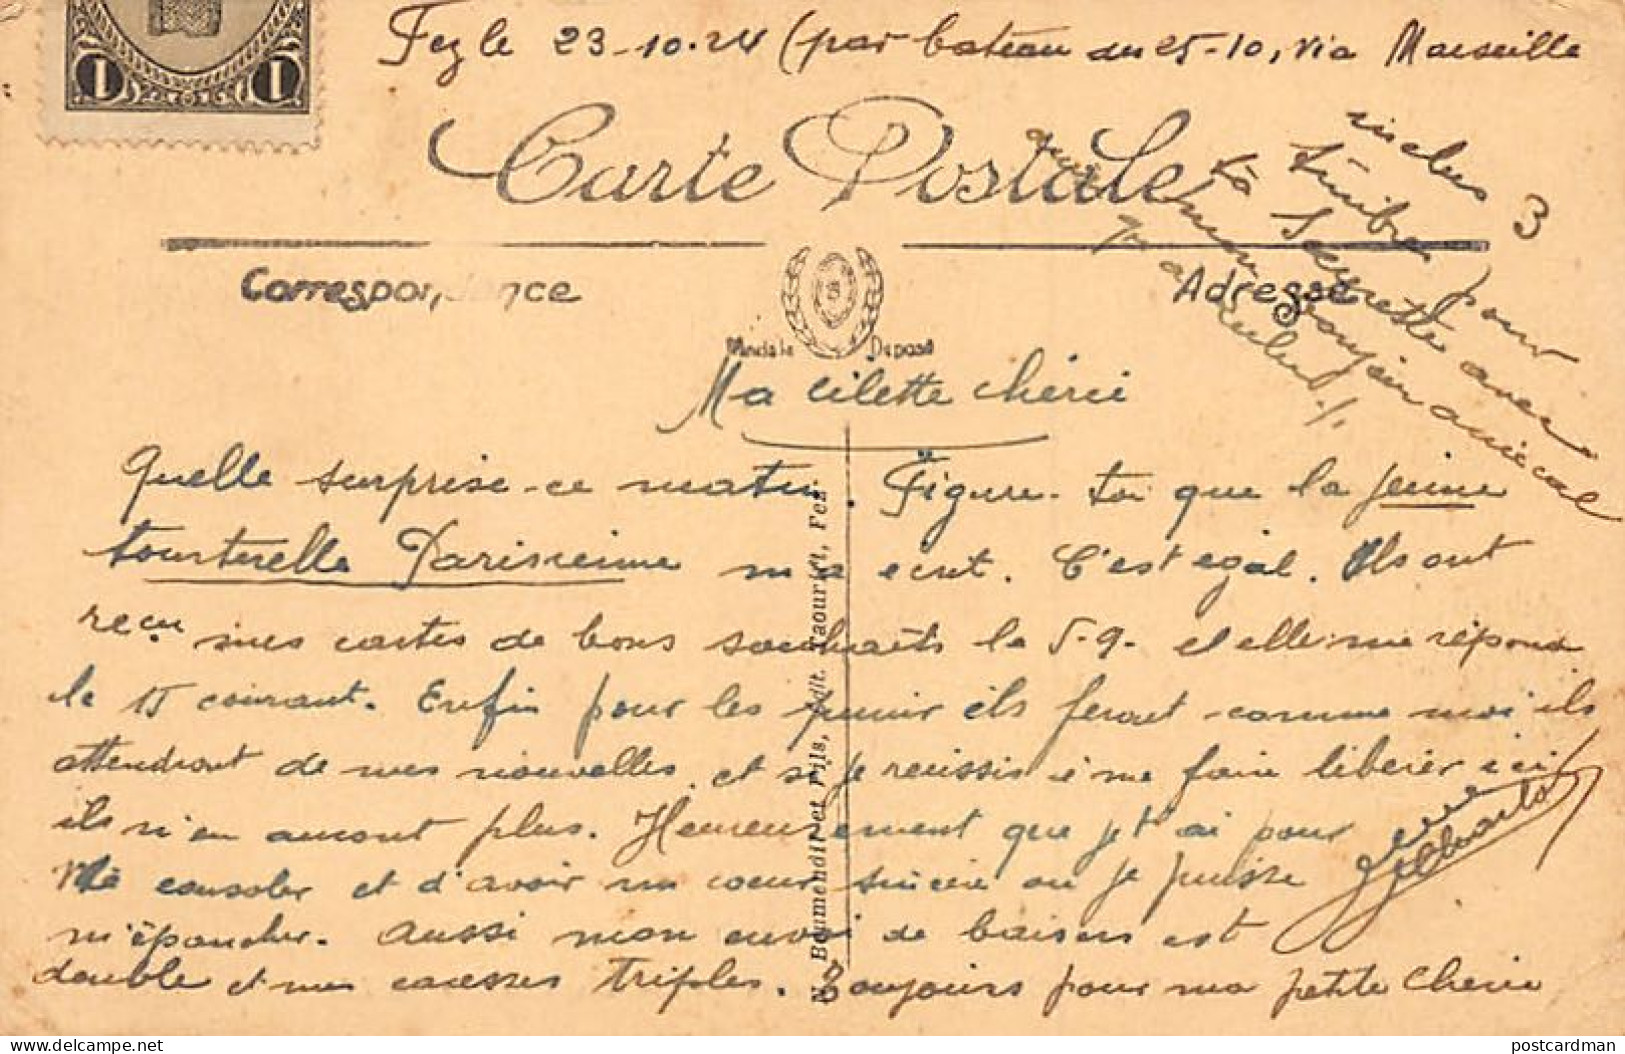 1 1
Fez le 23-10-24 (par bateau du 25-10, via Marseille
Carte Postale
inclus 3
timbres pour
ta Soeurette avec
mon bonjour amical
Correspondance
Adresse
Modèle Déposé
Ma Lilette chérie
Quelle surprise ce matin. Figure-toi que la jeune
tourterelle Parisienne m'a ecrit. C'est egal. Ils ont
reçu mes cartes de bons souhaits le 5-9- et elle me répond
le 15 courant. Enfin pour les punir ils feront comme moi ils
attendront de mes nouvelles, et si je reussis à me faire libérer ici
ils n'en auront plus. Heureusement que je t'ai pour
me consoler et d'avoir un coeur sincère ou je puisse
m'épancher. Aussi mon envoi de baisers est
double et mes caresses triples. Toujours pour ma petite Cherie
Boumendil et Fils, Edit. Fez
www.delcampe.net
postcardman